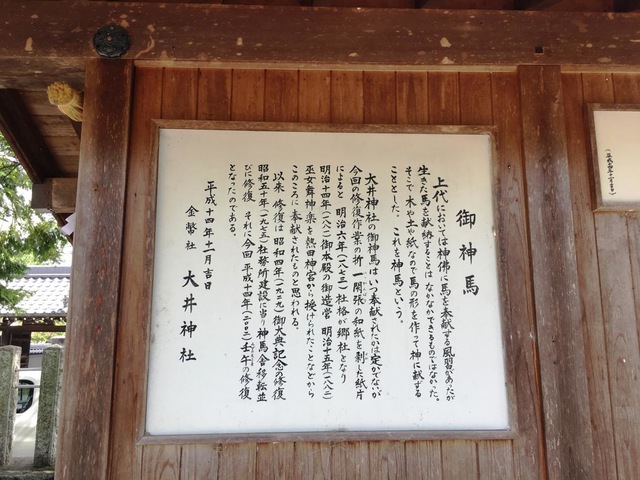 御神馬
上代においては神佛に馬を奉献する風習があったが
生きた馬を献納することは なかなかできるものではなかった。
そこで 木や土や紙などで馬の形を作って神に献ずる
こととした。これを神馬という。
大井神社の御神馬はいつ奉献されたかは定かでないが
今回の修復作業の折 一閑張の和紙を剥した紙片
によると 明治六年(一八七三)社格が郷社となり
明治十四年(一八八一)御本殿の御造営 明治十五年(一八八二)
巫女舞神楽を熱田神宮から授けられたことなどから
このころに奉献されたものと思われる。
以来 修復は 昭和四年(一九二九)御大典記念の修復
昭和五十年(一九七五)社務所建設に当り神馬舎移転並
びに修復 それに今回 平成十四年(二〇〇二)壬午の修復
となったのである。
平成十四年十一月吉日
金幣社 大井神社